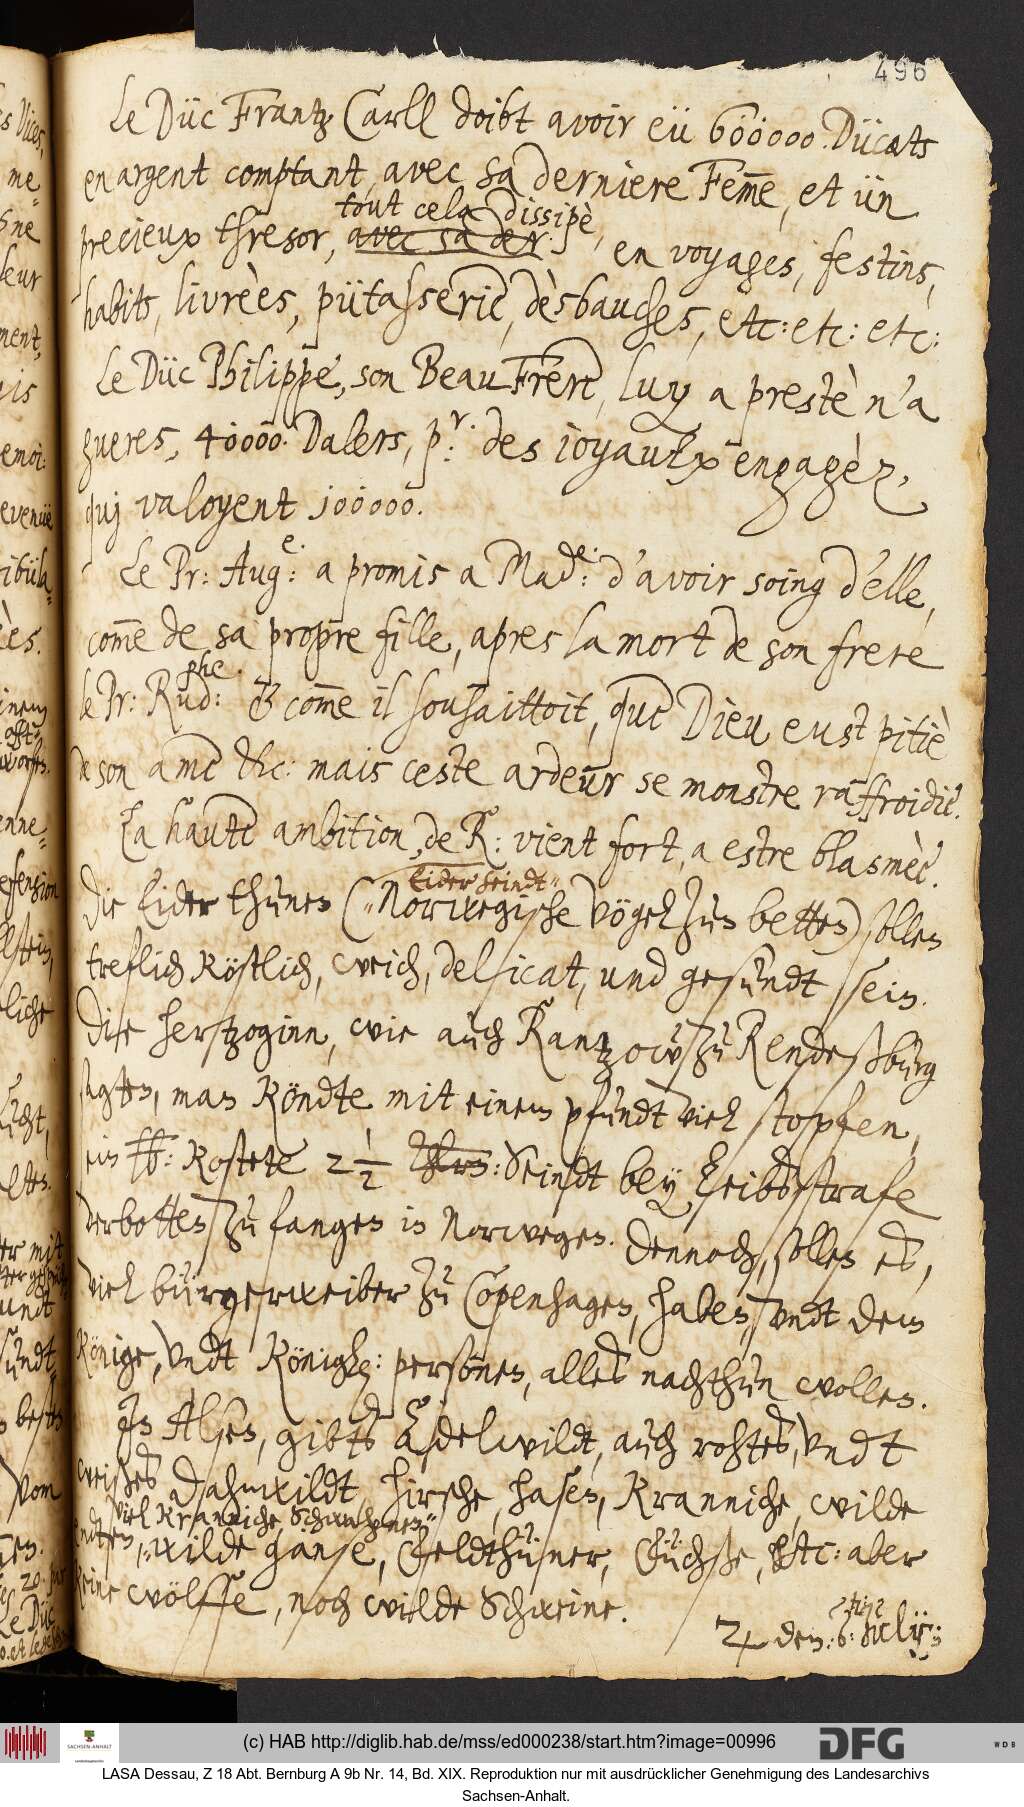 496
Le Düc Frantz Carll doibt avoir eü 600000. Dücats
en argent comptant, avec sa derniere Fem̄e, et ün
precieux thresor, avec sa der: tout cela dissipè, en voyages, festins,
habits, livrèes, pütasserie, dèsbauches, etc: etc: etc:
Le Düc Philippe, son Beau Frere, luy a prestè n'a
gueres, 40000. Dalers, p.r des joyaulx engagèz,
quj valoyent 100000.
Le Pr: Aug.e: a promis a Mad.e: d'avoir soing d'elle,
com̄e de sa propre fille, apres la mort de son frere
le Pr: Rud.phe: & com̄e il souhaittoit, que Dieu eust pitiè
de son ame &c: mais ceste ardeur se monstre raffroidie.
La haute ambition, de R: vient fort, a estre blasmèe.
Die Eider thunen (Eider seindt Norwegische Vögel zun betten) sollen
treflich köstlich, weich, delicat, und gesundt sein.
Dise hertzoginn, wie auch Rantzow zu Rendeßburg
sagten, man köndte mit einem pfundt viel stopfen,
ein ℔: kostete 2 1/2 Thlr: Seindt bey Leibsstrafe
verbotten zu fangen in Norwegen. Dennoch, sollen es,
viel bürgerweiber zu Copenhagen, haben, undt dem
Könige, undt Königl: personen, alles nachthun wollen.
In Alsen, gibts Edelwildt, auch rohtes, undt
weißes Dahmwildt, hirsche, hasen, Kranniche, wilde
endten, viel Kranniche, Schwahnen, wilde gänse, Feldthüner, Füchße, etc: aber
keine wölffe, noch wilde Schweine.
♃ den: 6: Julij:
(c) HAB http://diglib.hab.de/mss/ed000238/start.htm?image=00996
SACHSEN-ANHALT
DFG
WDB
LASA Dessau, Z 18 Abt. Bernburg A 9b Nr. 14, Bd. XIX. Reproduktion nur mit ausdrücklicher Genehmigung des Landesarchivs
Sachsen-Anhalt.